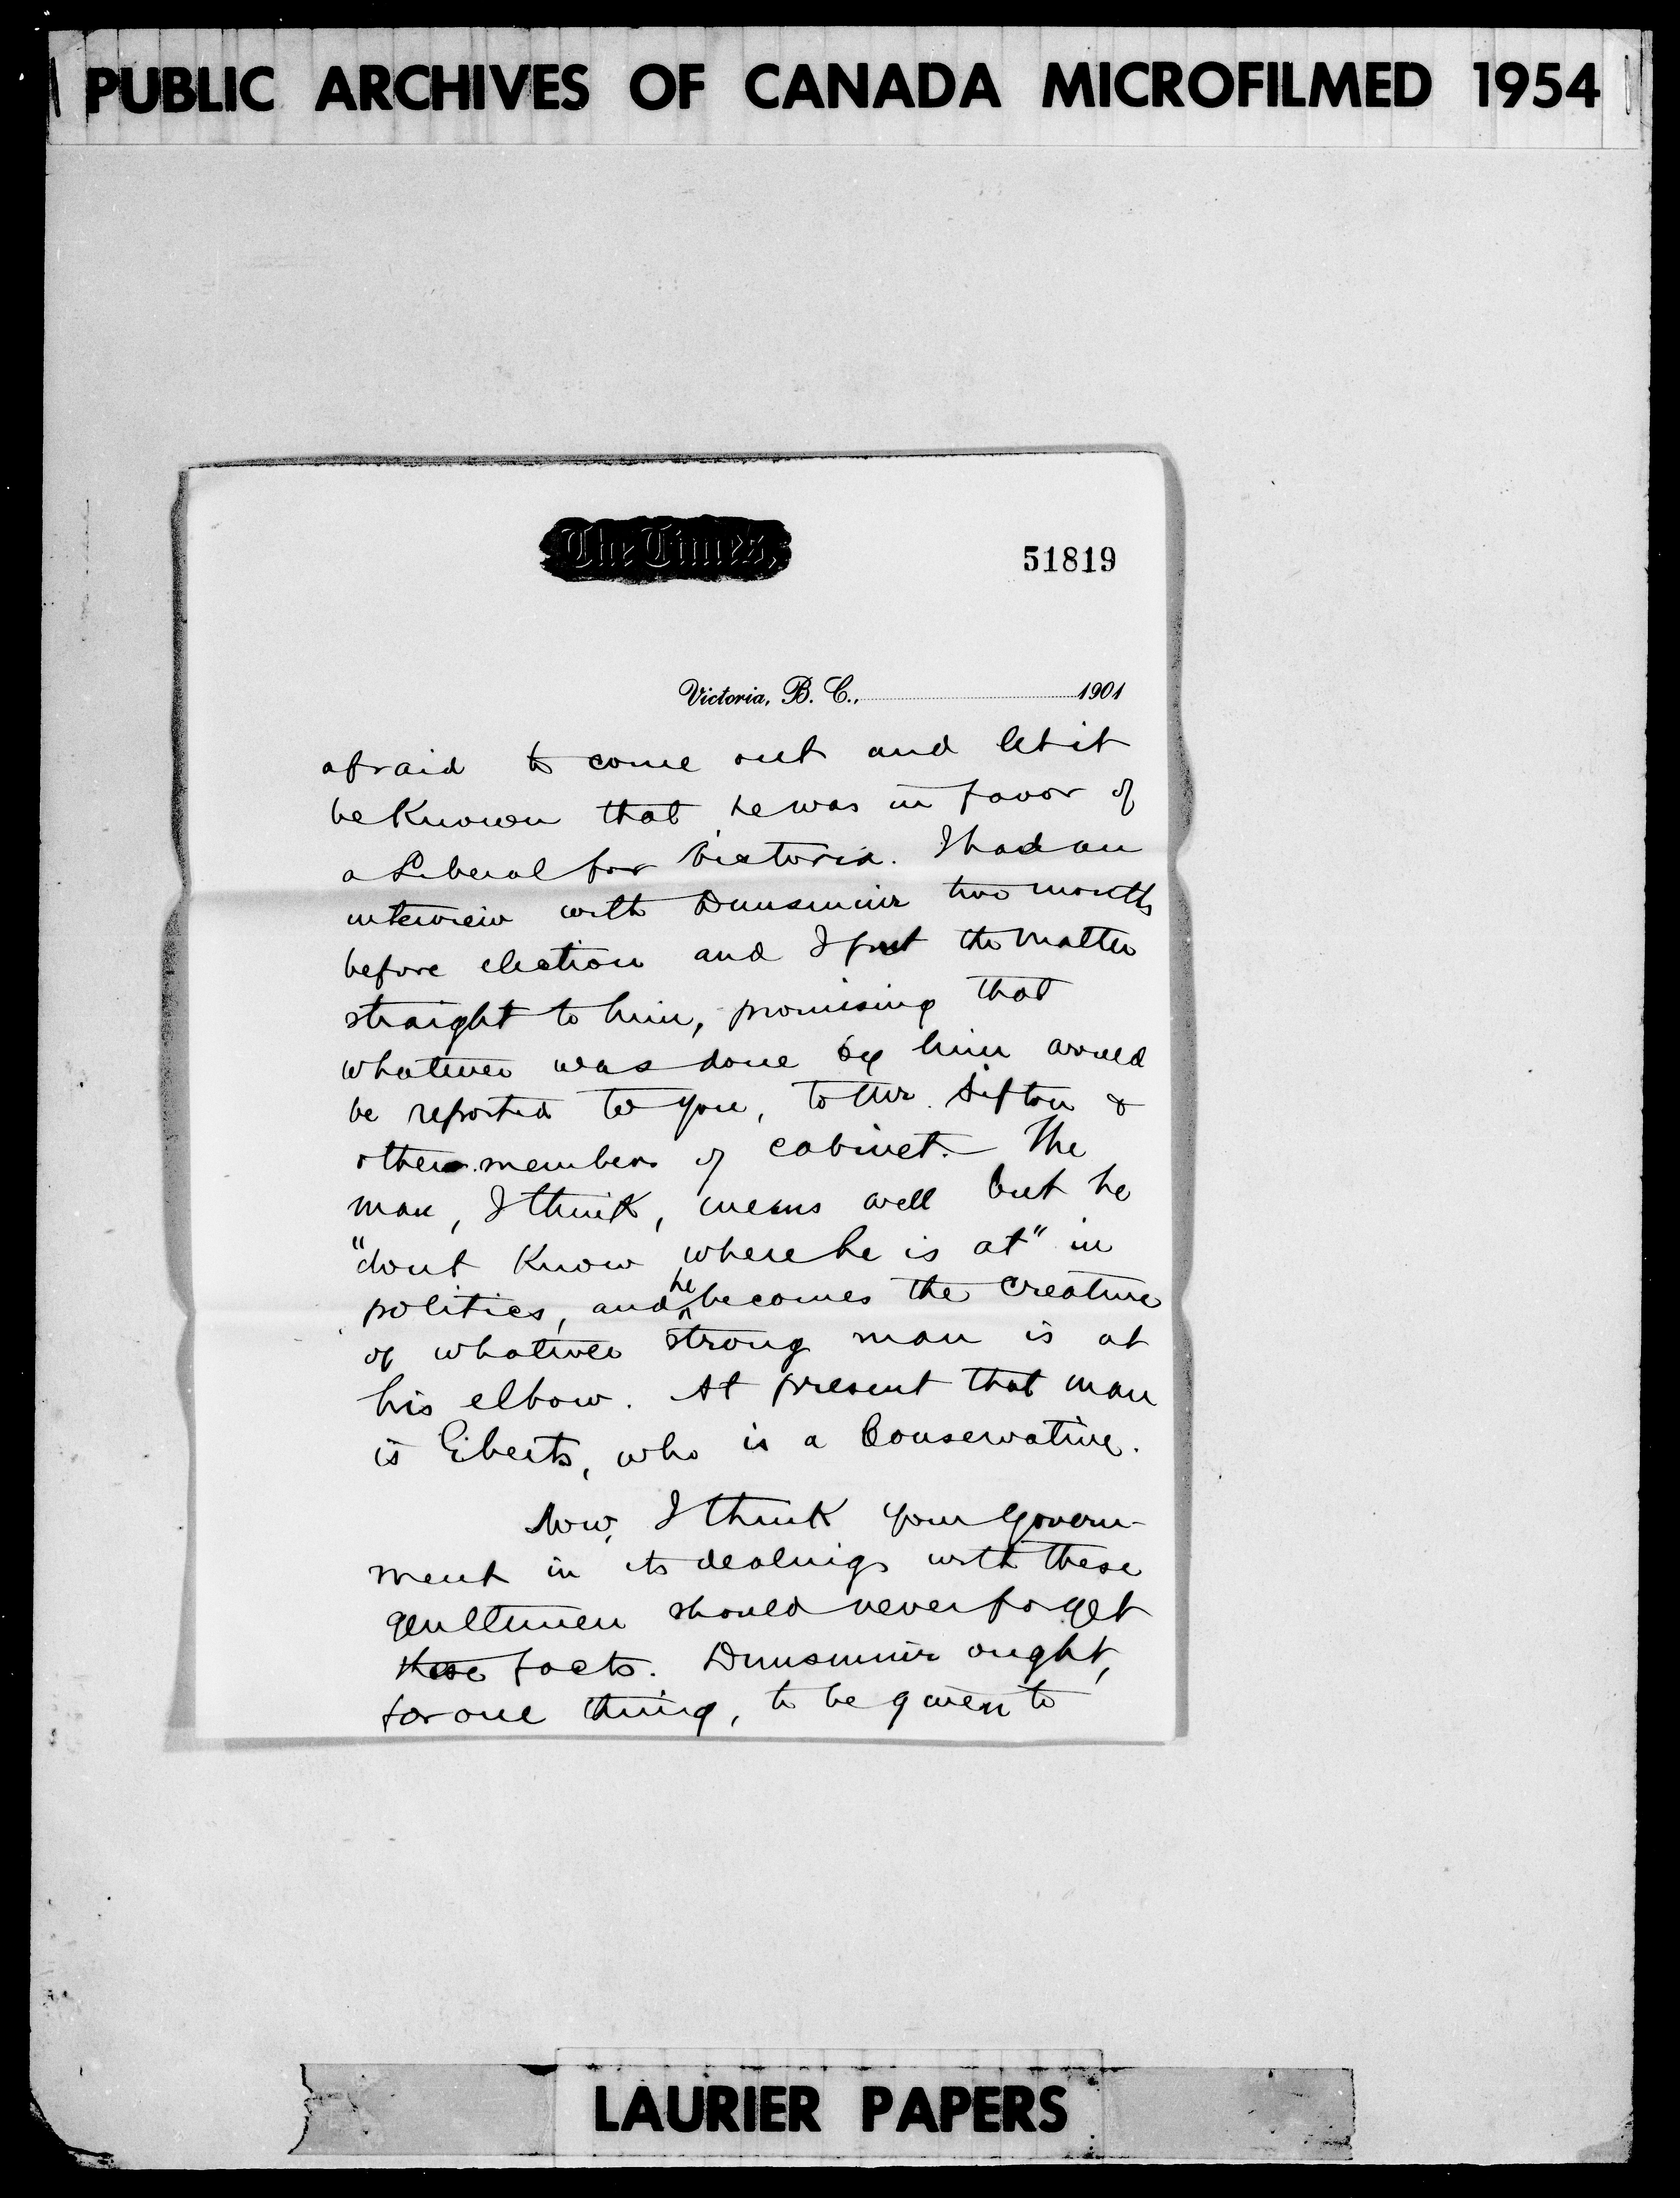 PUBLIC ARCHIVES OF CANADA MICROFILMED 1954
The Times,
51819
Victoria, B. C., 1901
afraid to come out and let it
be known that he was in favor of
a Liberal for Victoria. I had an
interview with Dunsmuir two months
before election and I put the matter
straight to him, promising that
whatever was done by him would
be reported to you, to Mr. Sifton &
other members of cabinet. The
man, I think, means well but he
"dont know where he is at" in
politics, and he becomes the creature
of whatever strong man is at
his elbow. At present that man
is Eberts, who is a Conservative.
Now, I think your Govern-
ment in its dealings with these
gentlemen should never forget
these facts. Dunsmuir ought,
for one thing, to be given to
LAURIER PAPERS